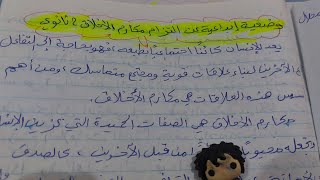 وضعية إدماجية عن التزام مكارم الأخلاق 2 ثانوي
يعد الإنسان كائنًا اجتماعيًا بطبعه، فهو بحاجة إلى التفاعل
الآخرين لبناء علاقات قوية ومجتمع متماسك، ومن أهم
سس هذه العلاقات هي مكارم الأخلاق.
مكارم الأخلاق هي الصفات الحميدة التي تزين الإنسا
وتجعله محبوبًا من قبل الآخرين، كالصدق